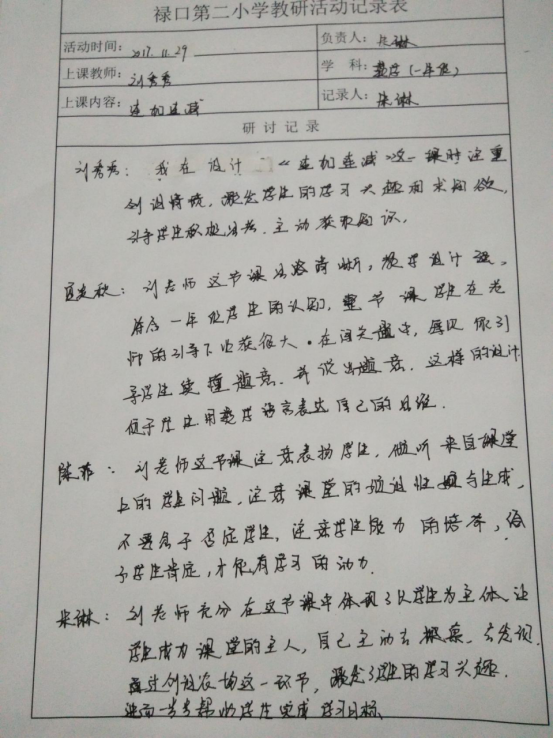 禄口第二小学教研活动记录表
活动时间：2017.11.29 负责人：朱琳
上课教师：刘秀秀 学 科：数学（一年级）
上课内容：连加连减 记录人：朱琳
研 讨 记 录
刘秀秀：我在设计《连加连减》这一课时注重
创设情境，激发学生的学习兴趣和求知欲，
引导学生积极思考，主动获取知识。
刘老师这节课思路清晰，教学设计
符合一年级学生的认知，整节课学生在老
师的引导下收获很大。在闯关题中，每次都引
导学生读懂题意，并说出题意，这样的设计
便于学生用数学语言表达自己的思维。
陈菲：刘老师这节课注意表扬学生，倾听来自课堂
上的学生问题，注意课堂的预设性与生成，
不要急于否定学生，注意学生能力的培养，给
予学生肯定，才能有学习的动力。
朱琳：刘老师充分在这节课中体现了以学生为主体，让
学生成为课堂的主人，自己主动去探索，去发现，
通过创设农场这一环节，激发了学生的学习兴趣，
进而一步步帮助学生完成学习目标。